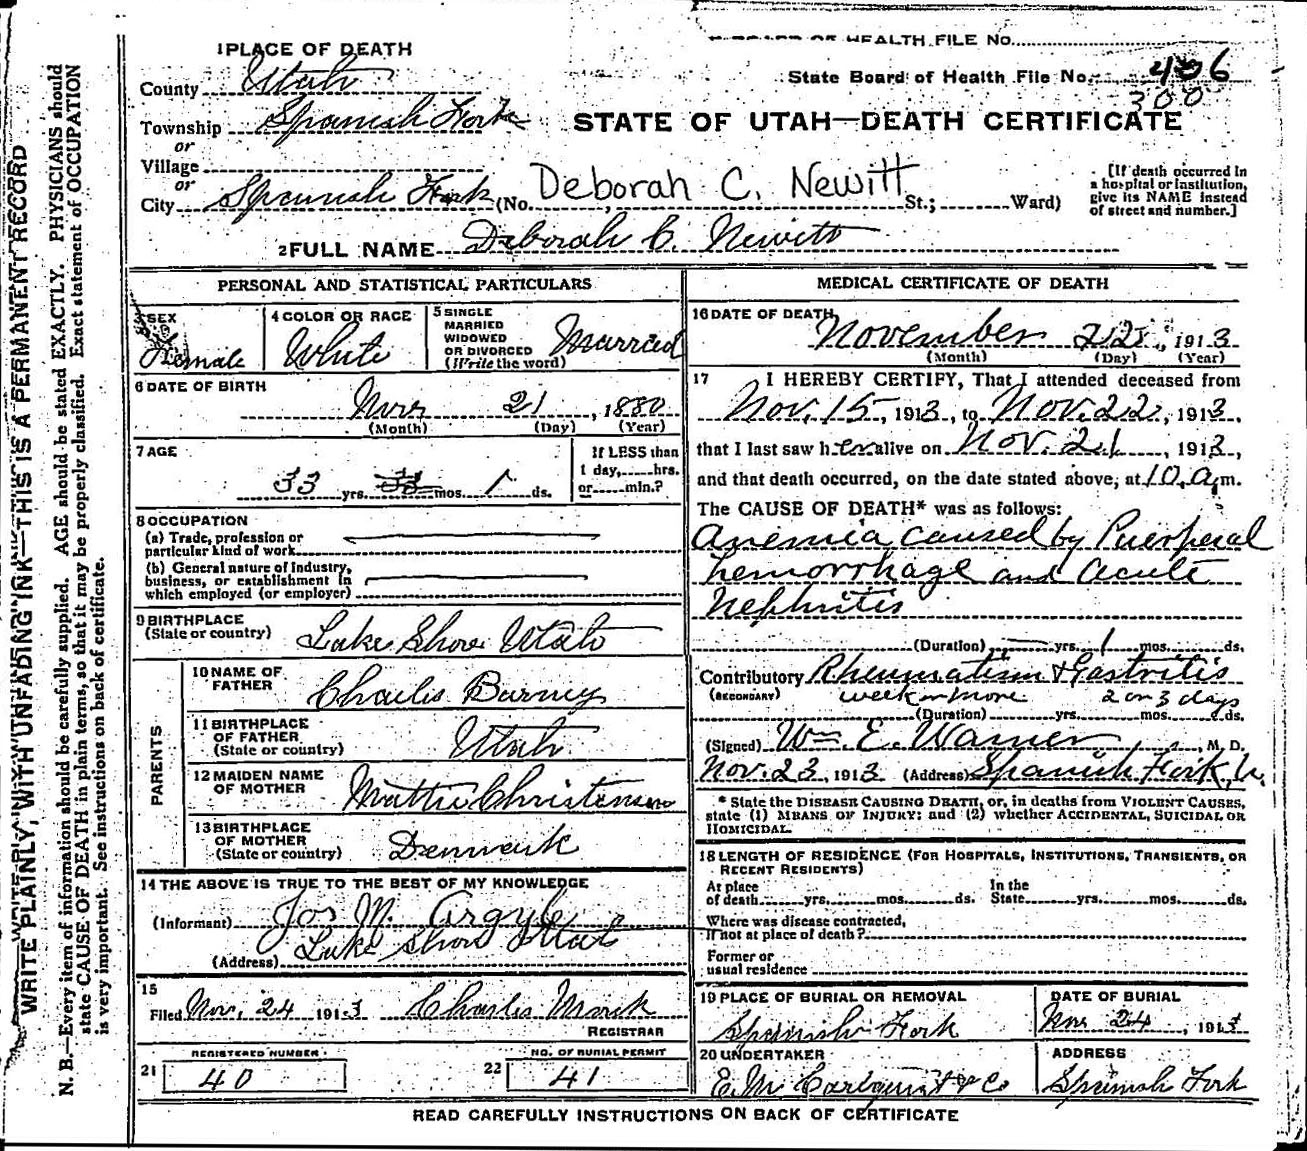 BOARD OF HEALTH FILE No.
1 PLACE OF DEATH
State Board of Health File No. 406
300
County Utah
Township Spanish Fork
STATE OF UTAH—DEATH CERTIFICATE
or
Village
or
City Spanish Fork (No. Deborah C. Newitt St.; Ward)
[If death occurred in
a hospital or institution,
give its NAME instead
of street and number.]
2 FULL NAME Deborah C. Newitt
PERSONAL AND STATISTICAL PARTICULARS
3 SEX
Female
4 COLOR OR RACE
White
5 SINGLE
MARRIED
WIDOWED
OR DIVORCED
(Write the word)
Married
6 DATE OF BIRTH
Nov 21, 1880
(Month) (Day) (Year)
7 AGE
33 yrs. mos. 1 ds.
If LESS than
1 day, hrs.
or min.?
8 OCCUPATION
(a) Trade, profession or
particular kind of work
(b) General nature of Industry,
business, or establishment in
which employed (or employer)
9 BIRTHPLACE
(State or country) Lake Shore Utah
PARENTS
10 NAME OF
FATHER Charles Barney
11 BIRTHPLACE
OF FATHER
(State or country) Utah
12 MAIDEN NAME
OF MOTHER Mattie Christensen
13 BIRTHPLACE
OF MOTHER
(State or country) Denmark
14 THE ABOVE IS TRUE TO THE BEST OF MY KNOWLEDGE
(Informant) Jos M. Argyle
(Address) Lake Shore Utah
15
Filed Nov. 24 1913 Charles Monk
REGISTRAR
REGISTERED NUMBER
21 40
NO. OF BURIAL PERMIT
22 41
MEDICAL CERTIFICATE OF DEATH
16 DATE OF DEATH
November 22, 1913
(Month) (Day) (Year)
17 I HEREBY CERTIFY, That I attended deceased from
Nov. 15, 1913, to Nov. 22, 1913,
that I last saw h er alive on Nov. 21, 1913,
and that death occurred, on the date stated above, at 10 a.m.
The CAUSE OF DEATH* was as follows:
Anemia caused by Puerperal
hemorrhage and acute
Nephritis
(Duration) yrs. 1 mos. ds.
Contributory Rheumatism & Gastritis
(SECONDARY) week or more 2 or 3 days
(Duration) yrs. mos. ds.
(Signed) Wm. E. Warner, M. D.
Nov. 23, 1913 (Address) Spanish Fork, U.
* State the DISEASE CAUSING DEATH, or, in deaths from VIOLENT CAUSES,
state (1) MEANS OF INJURY; and (2) whether ACCIDENTAL, SUICIDAL OR
HOMICIDAL.
18 LENGTH OF RESIDENCE (FOR HOSPITALS, INSTITUTIONS, TRANSIENTS, OR
RECENT RESIDENTS)
At place
of death yrs. mos. ds.
In the
State yrs. mos. ds.
Where was disease contracted,
if not at place of death?
Former or
usual residence
19 PLACE OF BURIAL OR REMOVAL
Spanish Fork
DATE OF BURIAL
Nov 24, 1913
20 UNDERTAKER
ADDRESS
Spanish Fork
READ CAREFULLY INSTRUCTIONS ON BACK OF CERTIFICATE
WRITE PLAINLY, WITH UNFADING INK—THIS IS A PERMANENT RECORD
N. B.—Every item of information should be carefully supplied. AGE should be stated EXACTLY. PHYSICIANS should
state CAUSE OF DEATH in plain terms, so that it may be properly classified. Exact statement of OCCUPATION
is very important. See instructions on back of certificate.